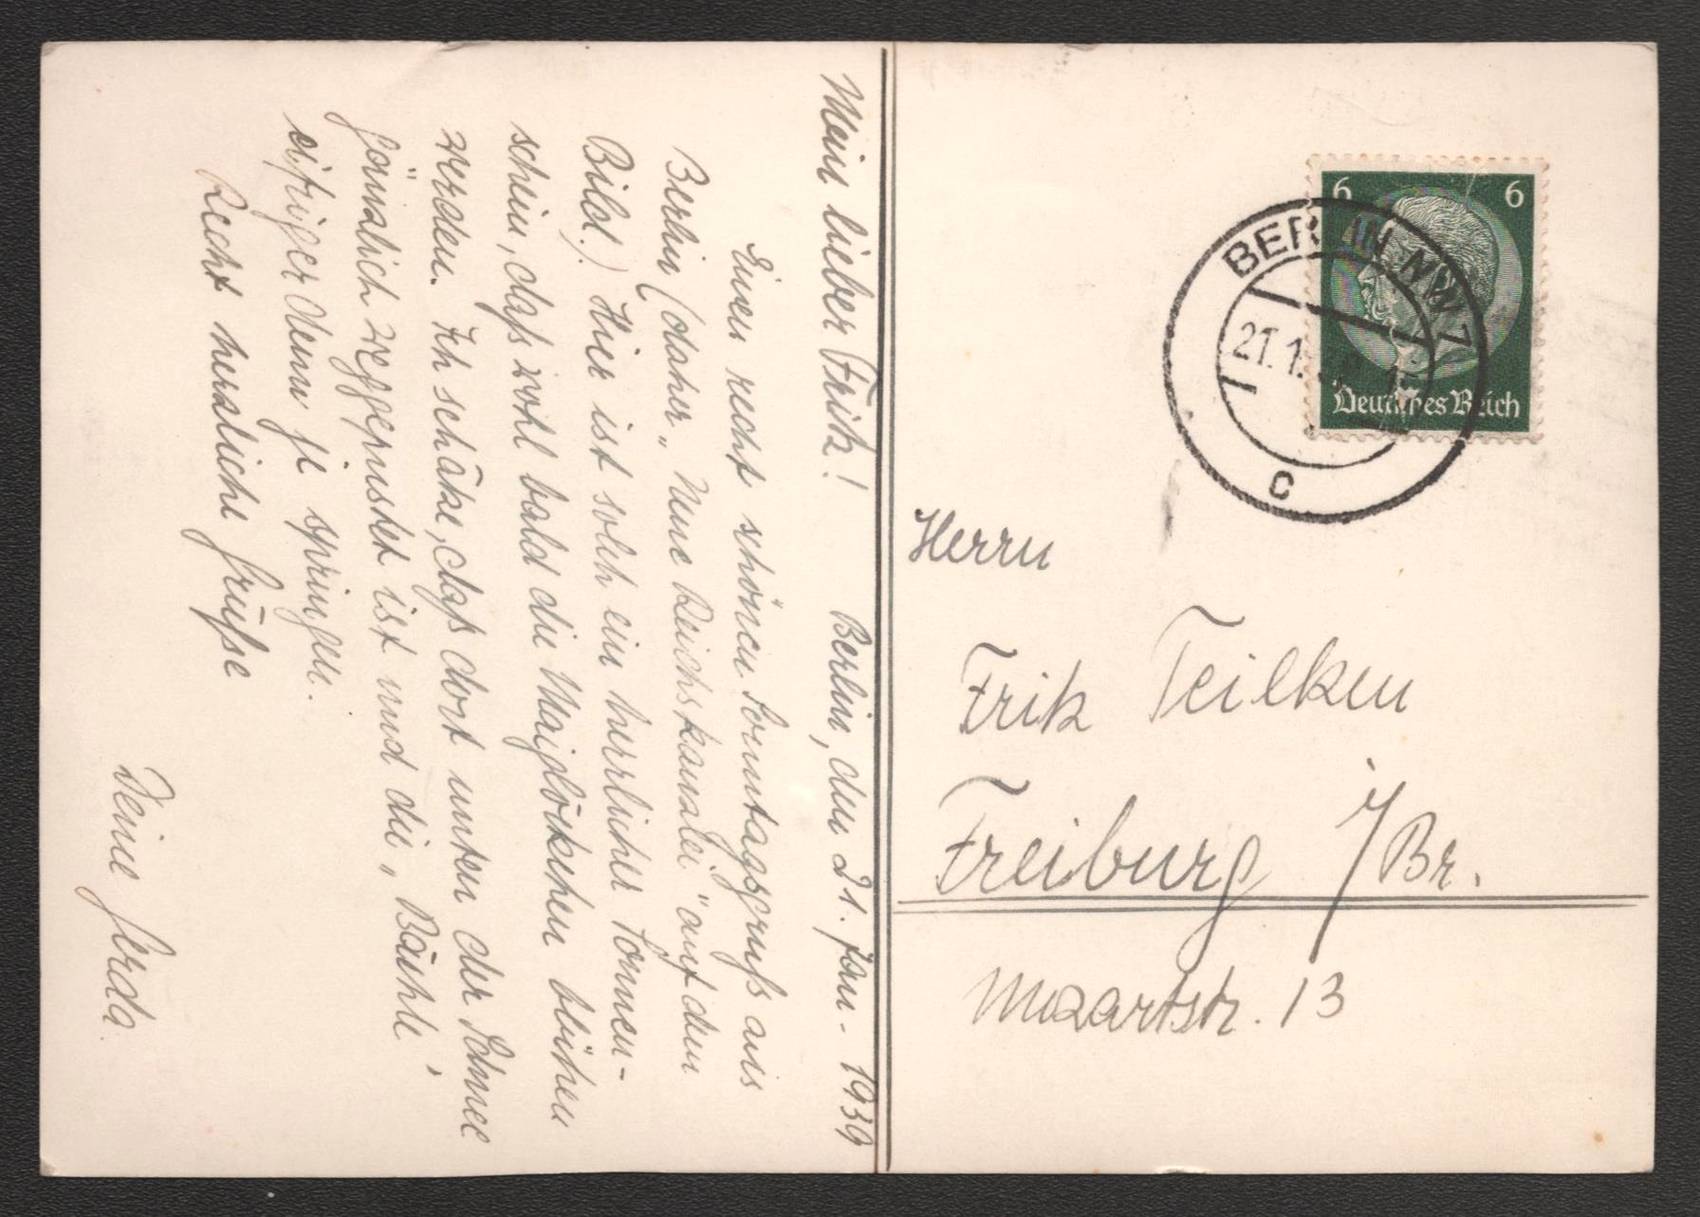 Mein lieber Fritz!
Berlin, den 21. Jan. 1939
Einen recht schönen Sonntagsgruß aus
Berlin (daher „Neue Reichskanzlei" auf dem
Bild.) Hier ist solch ein herrlicher Sonnen-
schein, daß wohl bald die Maiglöckchen blühen
werden. Ich schätze, daß dort unten der Schnee
förmlich weggepustet ist und die „Bächle"
eifriger denn je springen.
Recht herzliche Grüße
Deine Gerda.
6 6
Deutsches Reich
BERLIN NW 7
21.1.
c
Herrn
Fritz Teilken
Freiburg i/Br.
Mozartstr. 13